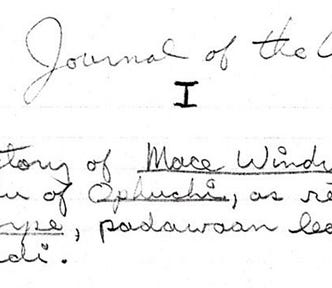 Journal of the
I
story of Mace Windu
of Ophuchi, as re
padawaan lea
di.